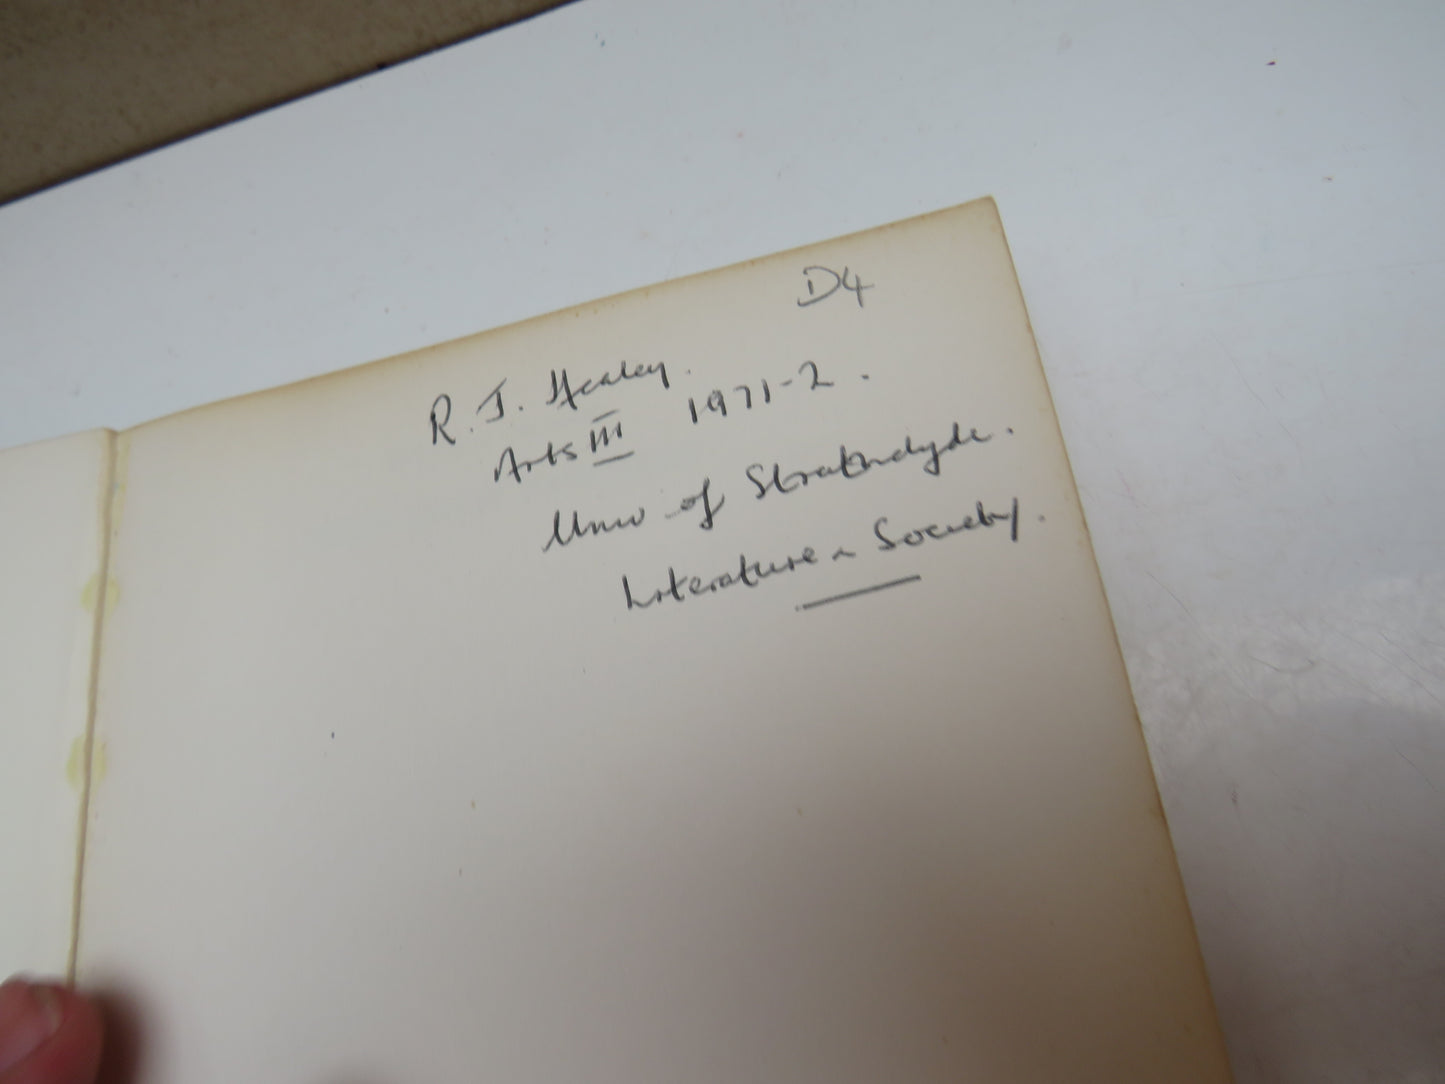 D4
R. J. Healey.
Arts III 1971-2.
Univ of Strathclyde.
Literature & Society.